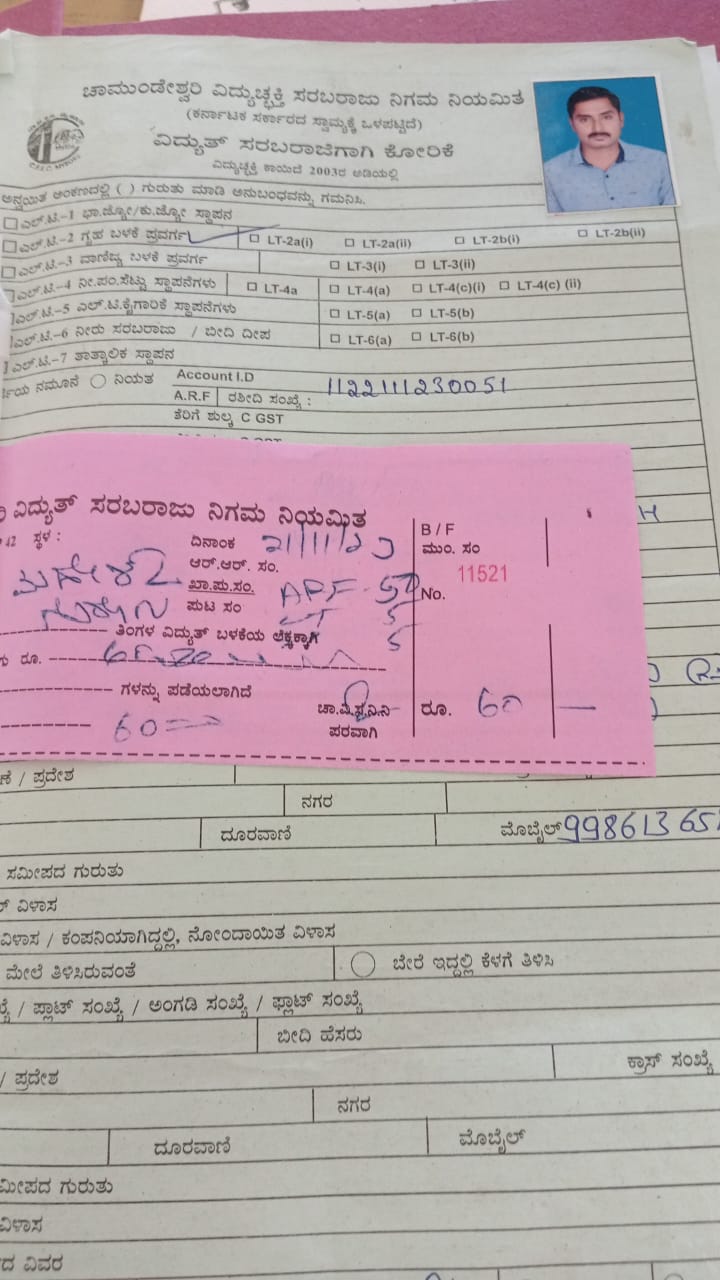 ಚಾಮುಂಡೇಶ್ವರಿ ವಿದ್ಯುಚ್ಛಕ್ತಿ ಸರಬರಾಜು ನಿಗಮ ನಿಯಮಿತ
(ಕರ್ನಾಟಕ ಸರ್ಕಾರದ ಸ್ವಾಮ್ಯಕ್ಕೆ ಒಳಪಟ್ಟಿದೆ)
ವಿದ್ಯುತ್ ಸರಬರಾಜಿಗಾಗಿ ಕೋರಿಕೆ
ವಿದ್ಯುಚ್ಛಕ್ತಿ ಕಾಯಿದೆ 2003ರ ಅಡಿಯಲ್ಲಿ
ಅನ್ವಯಿತ ಅಂಕಣದಲ್ಲಿ ( ) ಗುರುತು ಮಾಡಿ ಅನುಬಂಧವನ್ನು ಗಮನಿಸಿ.
ಎಲ್.ಟಿ.-1 ಭಾ.ಜ್ಯೋ/ಕು.ಜ್ಯೋ ಸ್ಥಾಪನ
ಎಲ್.ಟಿ.-2 ಗೃಹ ಬಳಕೆ ಪ್ರವರ್ಗ LT-2a(i) LT-2a(ii) LT-2b(i) LT-2b(ii)
ಎಲ್.ಟಿ.-3 ವಾಣಿಜ್ಯ ಬಳಕೆ ಪ್ರವರ್ಗ LT-3(i) LT-3(ii)
ಎಲ್.ಟಿ.-4 ನೀ.ಪಂ.ಸೆಟ್ಟು ಸ್ಥಾಪನೆಗಳು LT-4a LT-4(a) LT-4(c)(i) LT-4(c) (ii)
ಎಲ್.ಟಿ.-5 ಎಲ್.ಟಿ.ಕೈಗಾರಿಕೆ ಸ್ಥಾಪನೆಗಳು LT-5(a) LT-5(b)
ಎಲ್.ಟಿ.-6 ನೀರು ಸರಬರಾಜು / ಬೀದಿ ದೀಪ LT-6(a) LT-6(b)
ಎಲ್.ಟಿ.-7 ತಾತ್ಕಾಲಿಕ ಸ್ಥಾಪನ
ನಮೂನೆ ನಿಯತ Account I.D 1122111230051
A.R.F ರಶೀದಿ ಸಂಖ್ಯೆ :
ತೆರಿಗೆ ಶುಲ್ಕ C GST
ವಿದ್ಯುತ್ ಸರಬರಾಜು ನಿಗಮ ನಿಯಮಿತ
42 ಸ್ಥಳ : ದಿನಾಂಕ 21/11/23 B / F
ಆರ್.ಆರ್. ಸಂ. ಮುಂ. ಸಂ
ಮಹೇಶ ಖಾ.ಪು.ಸಂ. ARF No. 11521
ಪುಟ ಸಂ
ತಿಂಗಳ ವಿದ್ಯುತ್ ಬಳಕೆಯ ಲೆಕ್ಕಕ್ಕಾಗಿ
ರೂ.
ಗಳನ್ನು ಪಡೆಯಲಾಗಿದೆ ಚಾ.ವಿ.ಸ.ನಿ.ನಿ ರೂ. 60
60 ಪರವಾಗಿ
/ ಪ್ರದೇಶ
ನಗರ
ದೂರವಾಣಿ ಮೊಬೈಲ್ 998613651
ಸಮೀಪದ ಗುರುತು
ವಿಳಾಸ
ವಿಳಾಸ / ಕಂಪನಿಯಾಗಿದ್ದಲ್ಲಿ, ನೋಂದಾಯಿತ ವಿಳಾಸ
ಮೇಲೆ ತಿಳಿಸಿರುವಂತೆ ಬೇರೆ ಇದ್ದಲ್ಲಿ ಕೆಳಗೆ ತಿಳಿಸಿ
/ ಪ್ಲಾಟ್ ಸಂಖ್ಯೆ / ಅಂಗಡಿ ಸಂಖ್ಯೆ / ಫ್ಲಾಟ್ ಸಂಖ್ಯೆ
ಬೀದಿ ಹೆಸರು
/ ಪ್ರದೇಶ ಕ್ರಾಸ್ ಸಂಖ್ಯೆ
ನಗರ
ದೂರವಾಣಿ ಮೊಬೈಲ್
ಗುರುತು
ವಿಳಾಸ
ವಿವರ